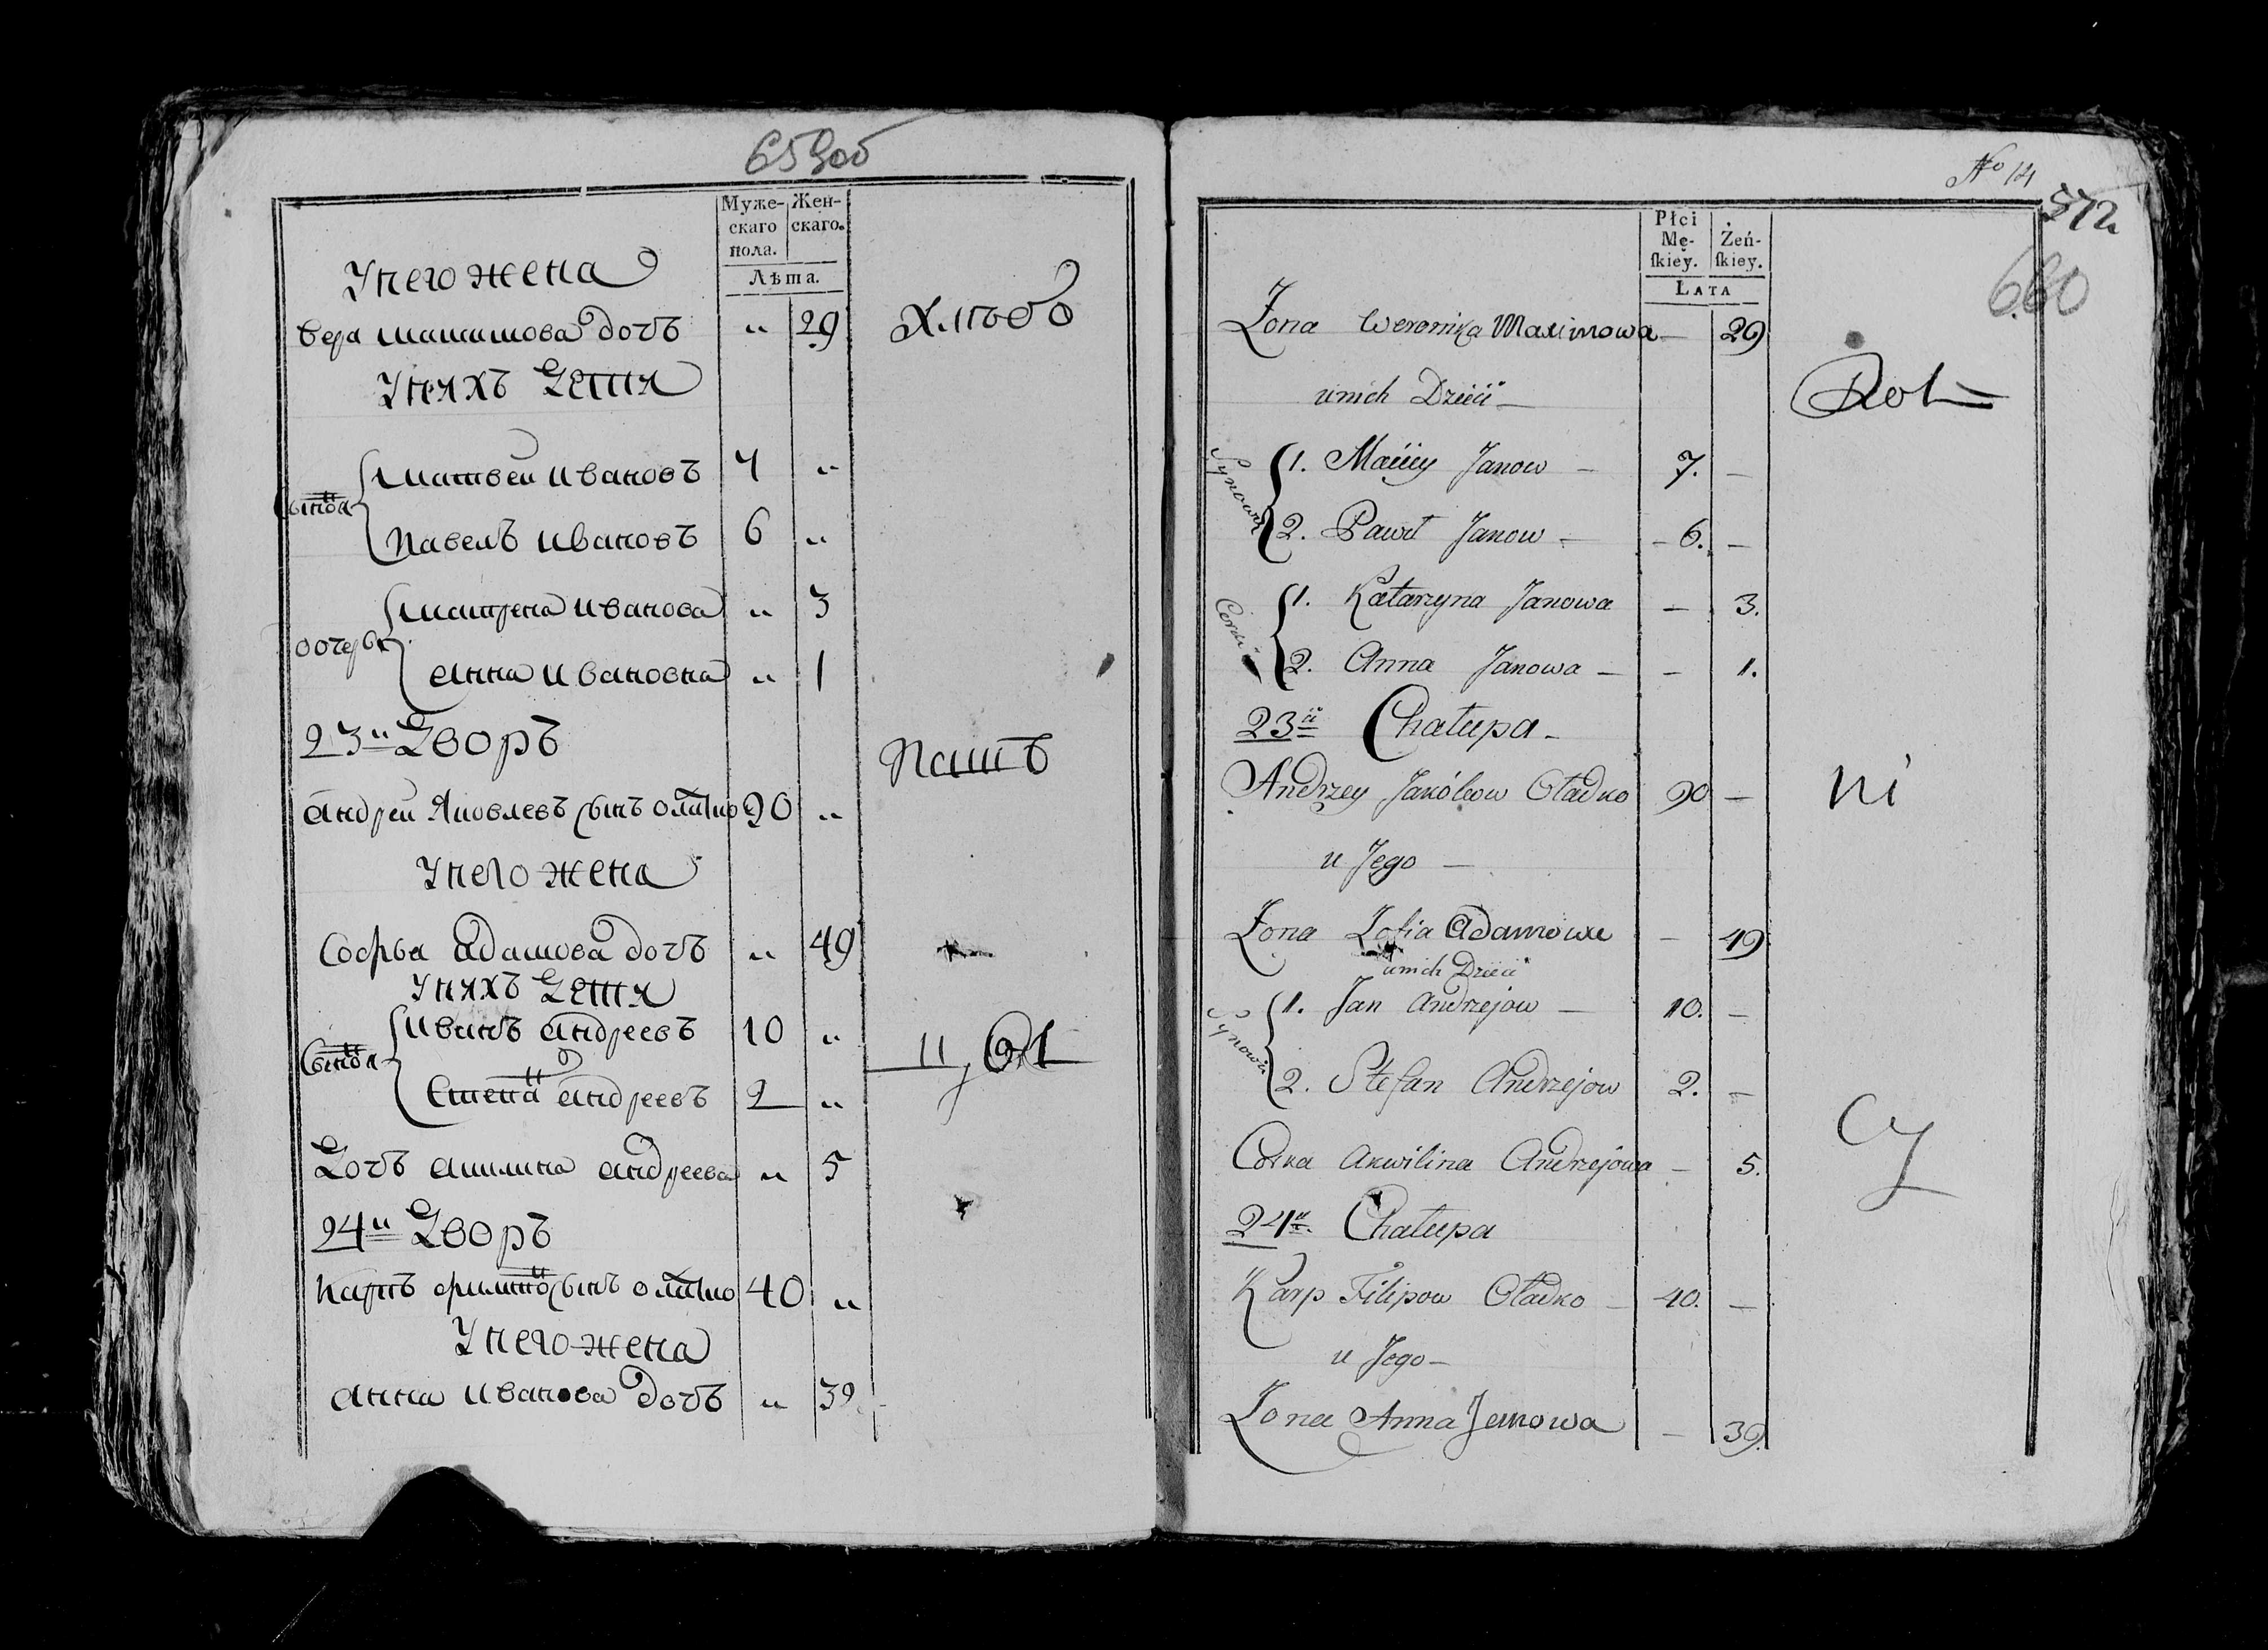 659об
Муже-
скаго
пола.
Жен-
скаго.
Лѣта.
У него жена
Вера Матимова дочь " 29
Хлѣбо
У нихъ Дети
Сынов.
Матвеи Ивановъ 7 "
Павелъ Ивановъ 6 "
дочери
Матрена Иванова " 3
Анна Ивановна " 1
23и Дворъ
Пашъ
Андреи Яковлевъ сынъ 90 "
У него жена
Софья Адамова дочь " 49
У нихъ Дети
Сынов.
Иванъ Андреевъ 10 "
Степа Андреевъ 2 "
Дочь Акилина Андреева " 5
24и Дворъ
Карпъ Филипо сынъ 40 "
У него жена
Анна Иванова дочь " 39
No 14
572.
660
Płci
Mę-
skiey.
Żeń-
skiey.
LATA
Żona Weronika Maximowa — 29
u nich Dzieci —
Rol=
Synowie
1. Maciey Janow — 7. —
2. Paweł Janow — 6. —
Corki
1. Katarzyna Janowa — 3.
2. Anna Janowa — — 1.
23a Chałupa —
Andrzey Jakóbow Oładko 90 —
ni
u Jego —
Żona Zofia Adamowa — 49
u nich Dzieci
Synowie
1. Jan Andrzejow — 10. —
2. Stefan Andrzejow 2. —
cy
Corka Akwilina Andrzejowa — 5.
24a. Chałupa
Karp Filipow Oładko — 40. —
u Jego —
Żona Anna Janowa — 39.